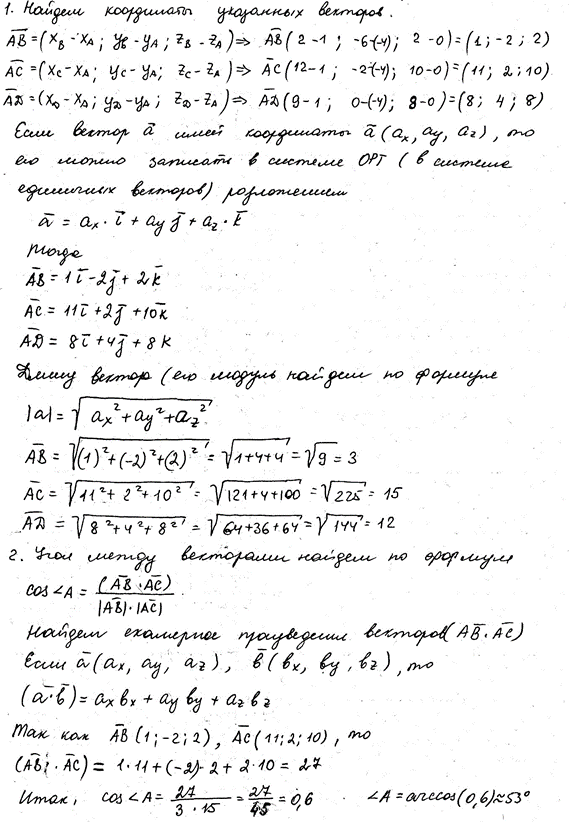 1. Найдем координаты указанных векторов.
AB̅=(x_B-x_A; y_B-y_A; z_B-z_A)⇒ AB̅(2-1; -6-(-4); 2-0)=(1; -2; 2)
AC̅=(x_C-x_A; y_C-y_A; z_C-z_A)⇒ AC̅(12-1; -2-(-4); 10-0)=(11; 2; 10)
AD̅=(x_D-x_A; y_D-y_A; z_D-z_A)⇒ AD̅(9-1; 0-(-4); 8-0)=(8; 4; 8)
Если вектор a̅ имеет координаты a̅(ax, ay, az), то
его можно записать в системе ОРТ (в системе
единичных векторов) разложением
a̅ = ax·i̅ + ay j̅ + az·k̅
Тогда
AB̅ = 1i̅-2j̅+2k̅
AC̅ = 11i̅+2j̅+10k̅
AD̅ = 8i̅+4j̅+8k
Длину вектор (его модуль найдем по формуле
|a|=√(ax²+ay²+az²)
AB̅ = √((1)²+(-2)²+(2)²) = √(1+4+4) = √9 = 3
AC̅ = √(11²+2²+10²) = √(121+4+100) = √225 = 15
AD̅ = √(8²+4²+8²) = √(64+36+64) = √144 = 12
2. Угол между векторами найдем по формуле
cos∠A = (AB̅·AC̅)/|AB̅|·|AC̅|
Найдем скалярное произведение векторов (AB̅·AC̅)
Если a̅(ax, ay, az), b̅(bx, by, bz), то
(a̅·b̅)=ax bx + ay by + az bz
Так как AB̅(1;-2;2), AC̅(11;2;10), то
(AB̅·AC̅) = 1·11+(-2)·2+2·10 = 27
Итак, cos∠A = 27/3·15 = 27/45 = 0,6 ∠A = arccos(0,6)≈53°